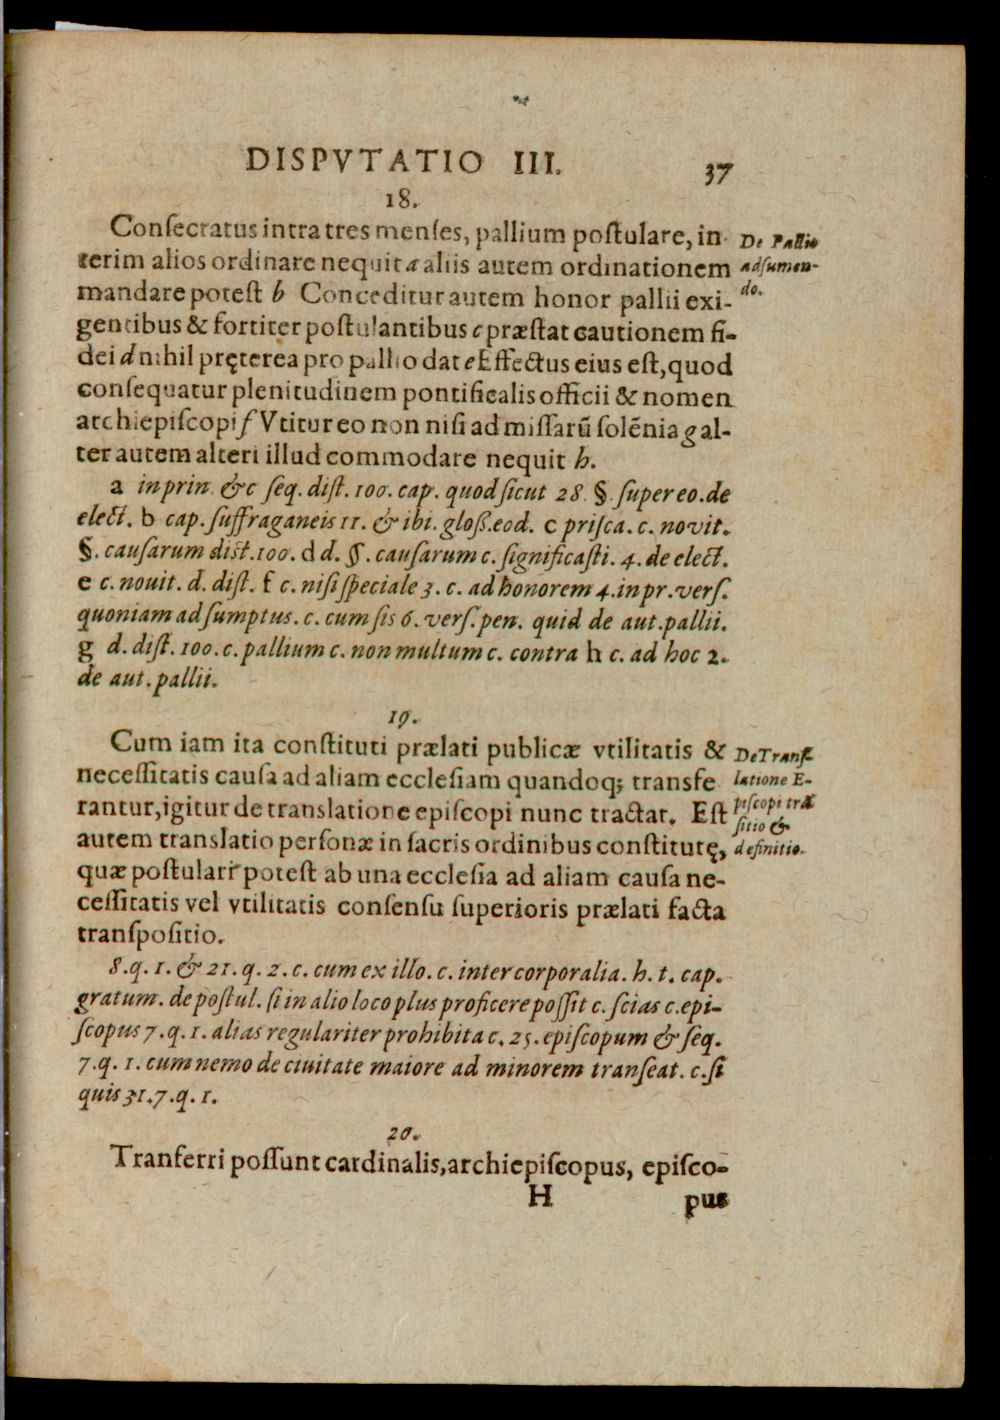 DISPVTATIO III.
37
18.
Consecratus intra tres menses, pallium postulare, in-
terim alios ordinare nequit a aliis autem ordinationem
mandare potest b Conceditur autem honor pallii exi-
gentibus & fortiter postulantibus c præstat cautionem fi-
dei d nihil pręterea pro pallio dat e Effectus eius est, quod
consequatur plenitudinem pontificalis officii & nomen
archiepiscopi f Vtitur eo non nisi ad missarũ solẽnia g al-
ter autem alteri illud commodare nequit h.
De Pallio
adsumen-
do.
a in prin. & c seq. dist. 100. cap. quod sicut 28. §. super eo. de
elect. b cap. suffraganeis 11. & ibi. gloss. eod. c prisca. c. novit.
§. causarum dist. 100. d d. §. causarum c. significasti. 4. de elect.
e c. nouit. d. dist. f c. nisi speciale 3. c. ad honorem 4. in pr. vers.
quoniam adsumptus. c. cum sis 6. vers. pen. quid de aut. pallii.
g d. dist. 100. c. pallium c. non multum c. contra h c. ad hoc 2.
de aut. pallii.
19.
Cum iam ita constituti prælati publicæ vtilitatis &
necessitatis causa ad aliam ecclesiam quandoq; transfe
rantur, igitur de translatione episcopi nunc tractat. Est
autem translatio personæ in sacris ordinibus constitutę,
quæ postulari potest ab una ecclesia ad aliam causa ne-
cessitatis vel vtilitatis consensu superioris prælati facta
transpositio.
De Trans-
latione E-
piscopi træ
sitio &
definitio.
8. q. 1. & 21. q. 2. c. cum ex illo. c. inter corporalia. h. t. cap.
gratum. de postul. si in alio loco plus proficere possit c. scias c. epi-
scopus 7. q. 1. alias regulariter prohibita c. 25. episcopum & seq.
7. q. 1. cum nemo de ciuitate maiore ad minorem transeat. c. si
quis 31. 7. q. 1.
20.
Tranferri possunt cardinalis, archiepiscopus, episco-
H
pus